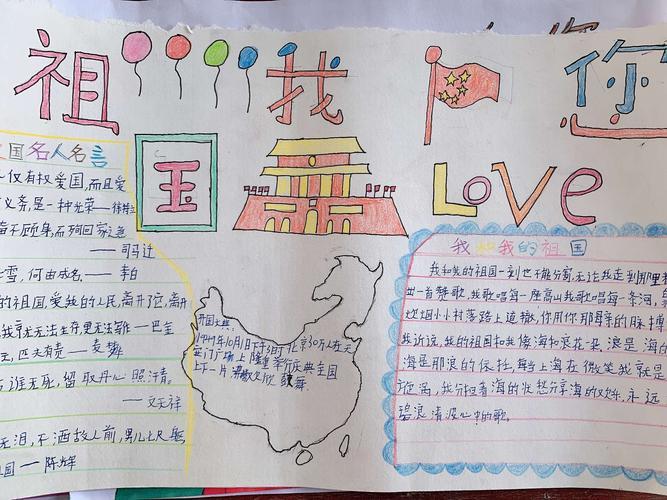 祖 我 你
国
LOVE
国名人名言
仅有权爱国,而且爱
义务,是一种光荣——徐特立
奋不顾身,而殉国家之急
——司马迁
雪,何由成名——李白
的祖国,爱我的人民,离开了它,离开
我就无法生存,更无法写作—巴金
亡,匹夫有责——麦孟华
谁无死,留取丹心照汗青。
——文天祥
无泪,不洒敌人前,男儿七尺躯,
国——陈辉
开国大典:
1949年10月1日下午3时,北京30万人在天
安门广场上隆重举行庆典全国
上下一片
我和我的祖国
我和我的祖国一刻也不能分割,无论我走到那里
出一首赞歌,我歌唱每一座高山,我歌唱每一条河,
炊烟小小村落路上一道辙,你用你那母亲的脉搏
我诉说,我的祖国和我像海和浪花一朵,浪是海的
海是那浪的依托,每当大海在微笑我就是
旋涡,我分担着海的忧愁分享海的欢乐,永远
碧浪清波心中的歌。